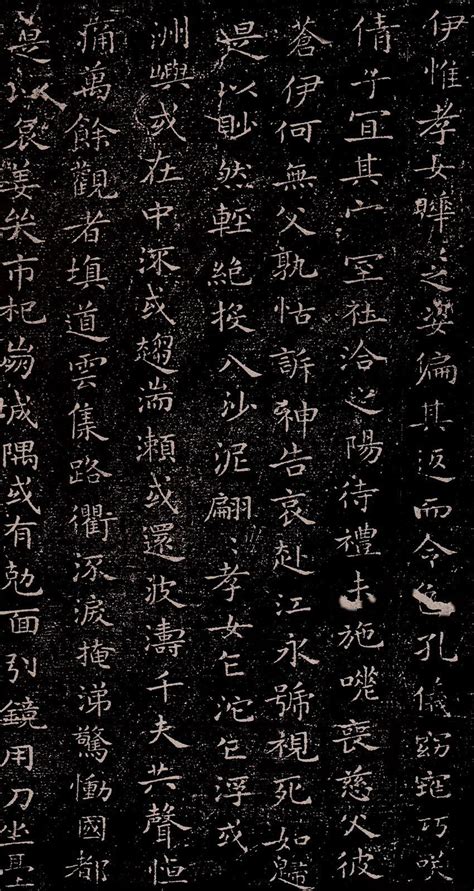 伊惟孝女曄〻之姿偏其返而令色孔儀窈窕巧咲
倩兮宜其家室在洽之陽待禮未施嗟喪慈父彼
蒼伊何無父孰怙訴神告哀赴江永號視死如歸
是以眇然輕絕投入沙泥翩〻孝女乍沉乍浮或
洲嶼或在中流或趨湍瀨或還波濤千夫共聲悼
痛萬餘觀者填道雲集路衢流淚掩涕驚慟國都
是以哀姜哭市杞崩城隅或有剋面引鏡用刀坐臺